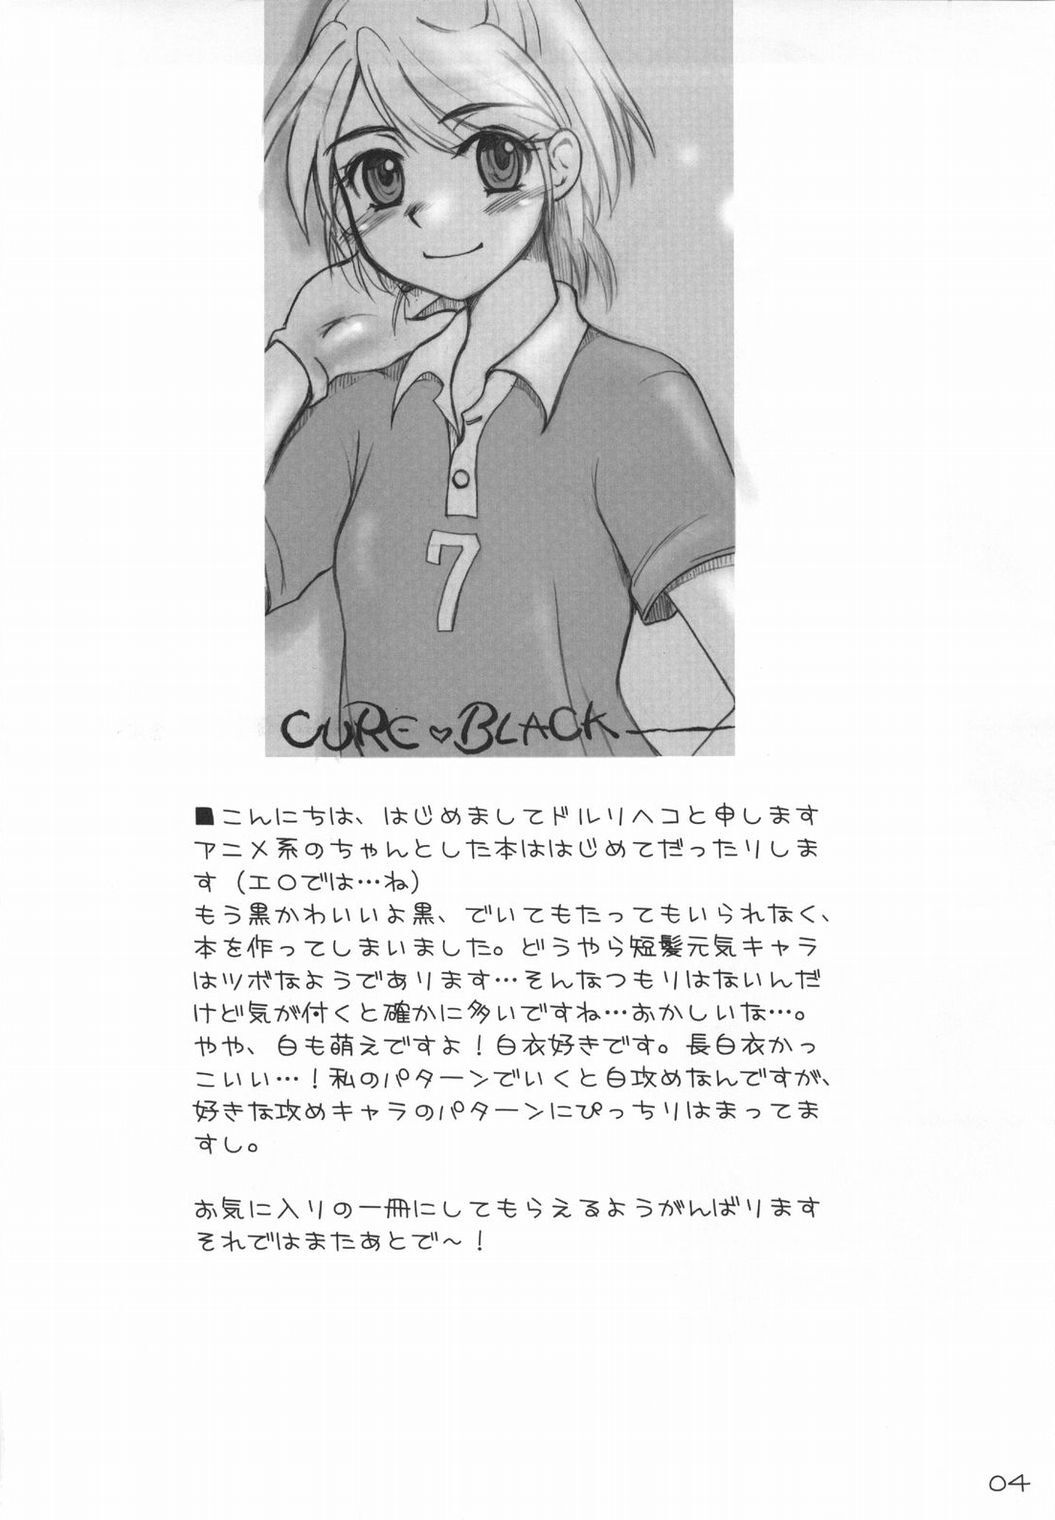 7
CURE♥BLACK
■こんにちは、はじめましてドルリヘコと申します
アニメ系のちゃんとした本ははじめてだったりしま
す（エ○では…ね）
もう黒かわいいよ黒、でいてもたってもいられなく、
本を作ってしまいました。どうやら短髪元気キャラ
はツボなようであります…そんなつもりはないんだ
けど気が付くと確かに多いですね…おかしいな…。
やや、白も萌えですよ！白衣好きです。長白衣かっ
こいい…！私のパターンでいくと白攻めなんですが、
好きな攻めキャラのパターンにぴっちりはまってま
すし。
お気に入りの一冊にしてもらえるようがんばります
それではまたあとで～！
04